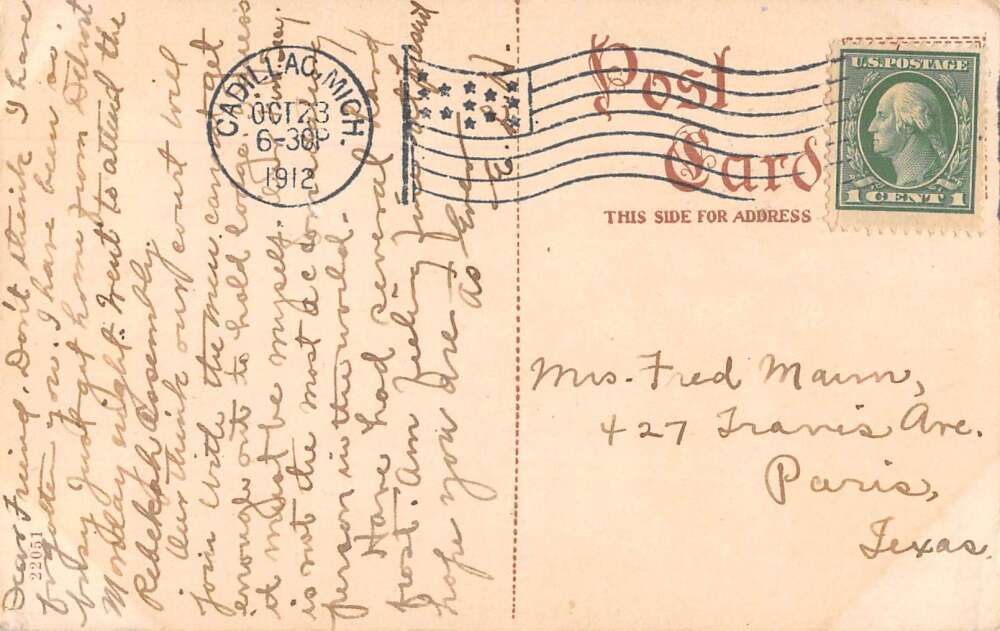 Dear Friend. Don't think I have
forgotten you. I have been so
busy Just got home from Detroit
Monday night. Went to attend the
Rebekah Assembly.
Our think our court will
join with the men can't get
enough out to hold lodge. I guess
it must be myself.
is not the most accommodating
person in the world.
Have had several hard
frost. Am feeling
hope you are
as Ever
22051
CADILLAC, MICH.
OCT 23
6-30P
1912
Post
Card
THIS SIDE FOR ADDRESS
U.S. POSTAGE
1 CENT 1
Mrs. Fred Mann,
427 Travis Ave.
Paris,
Texas